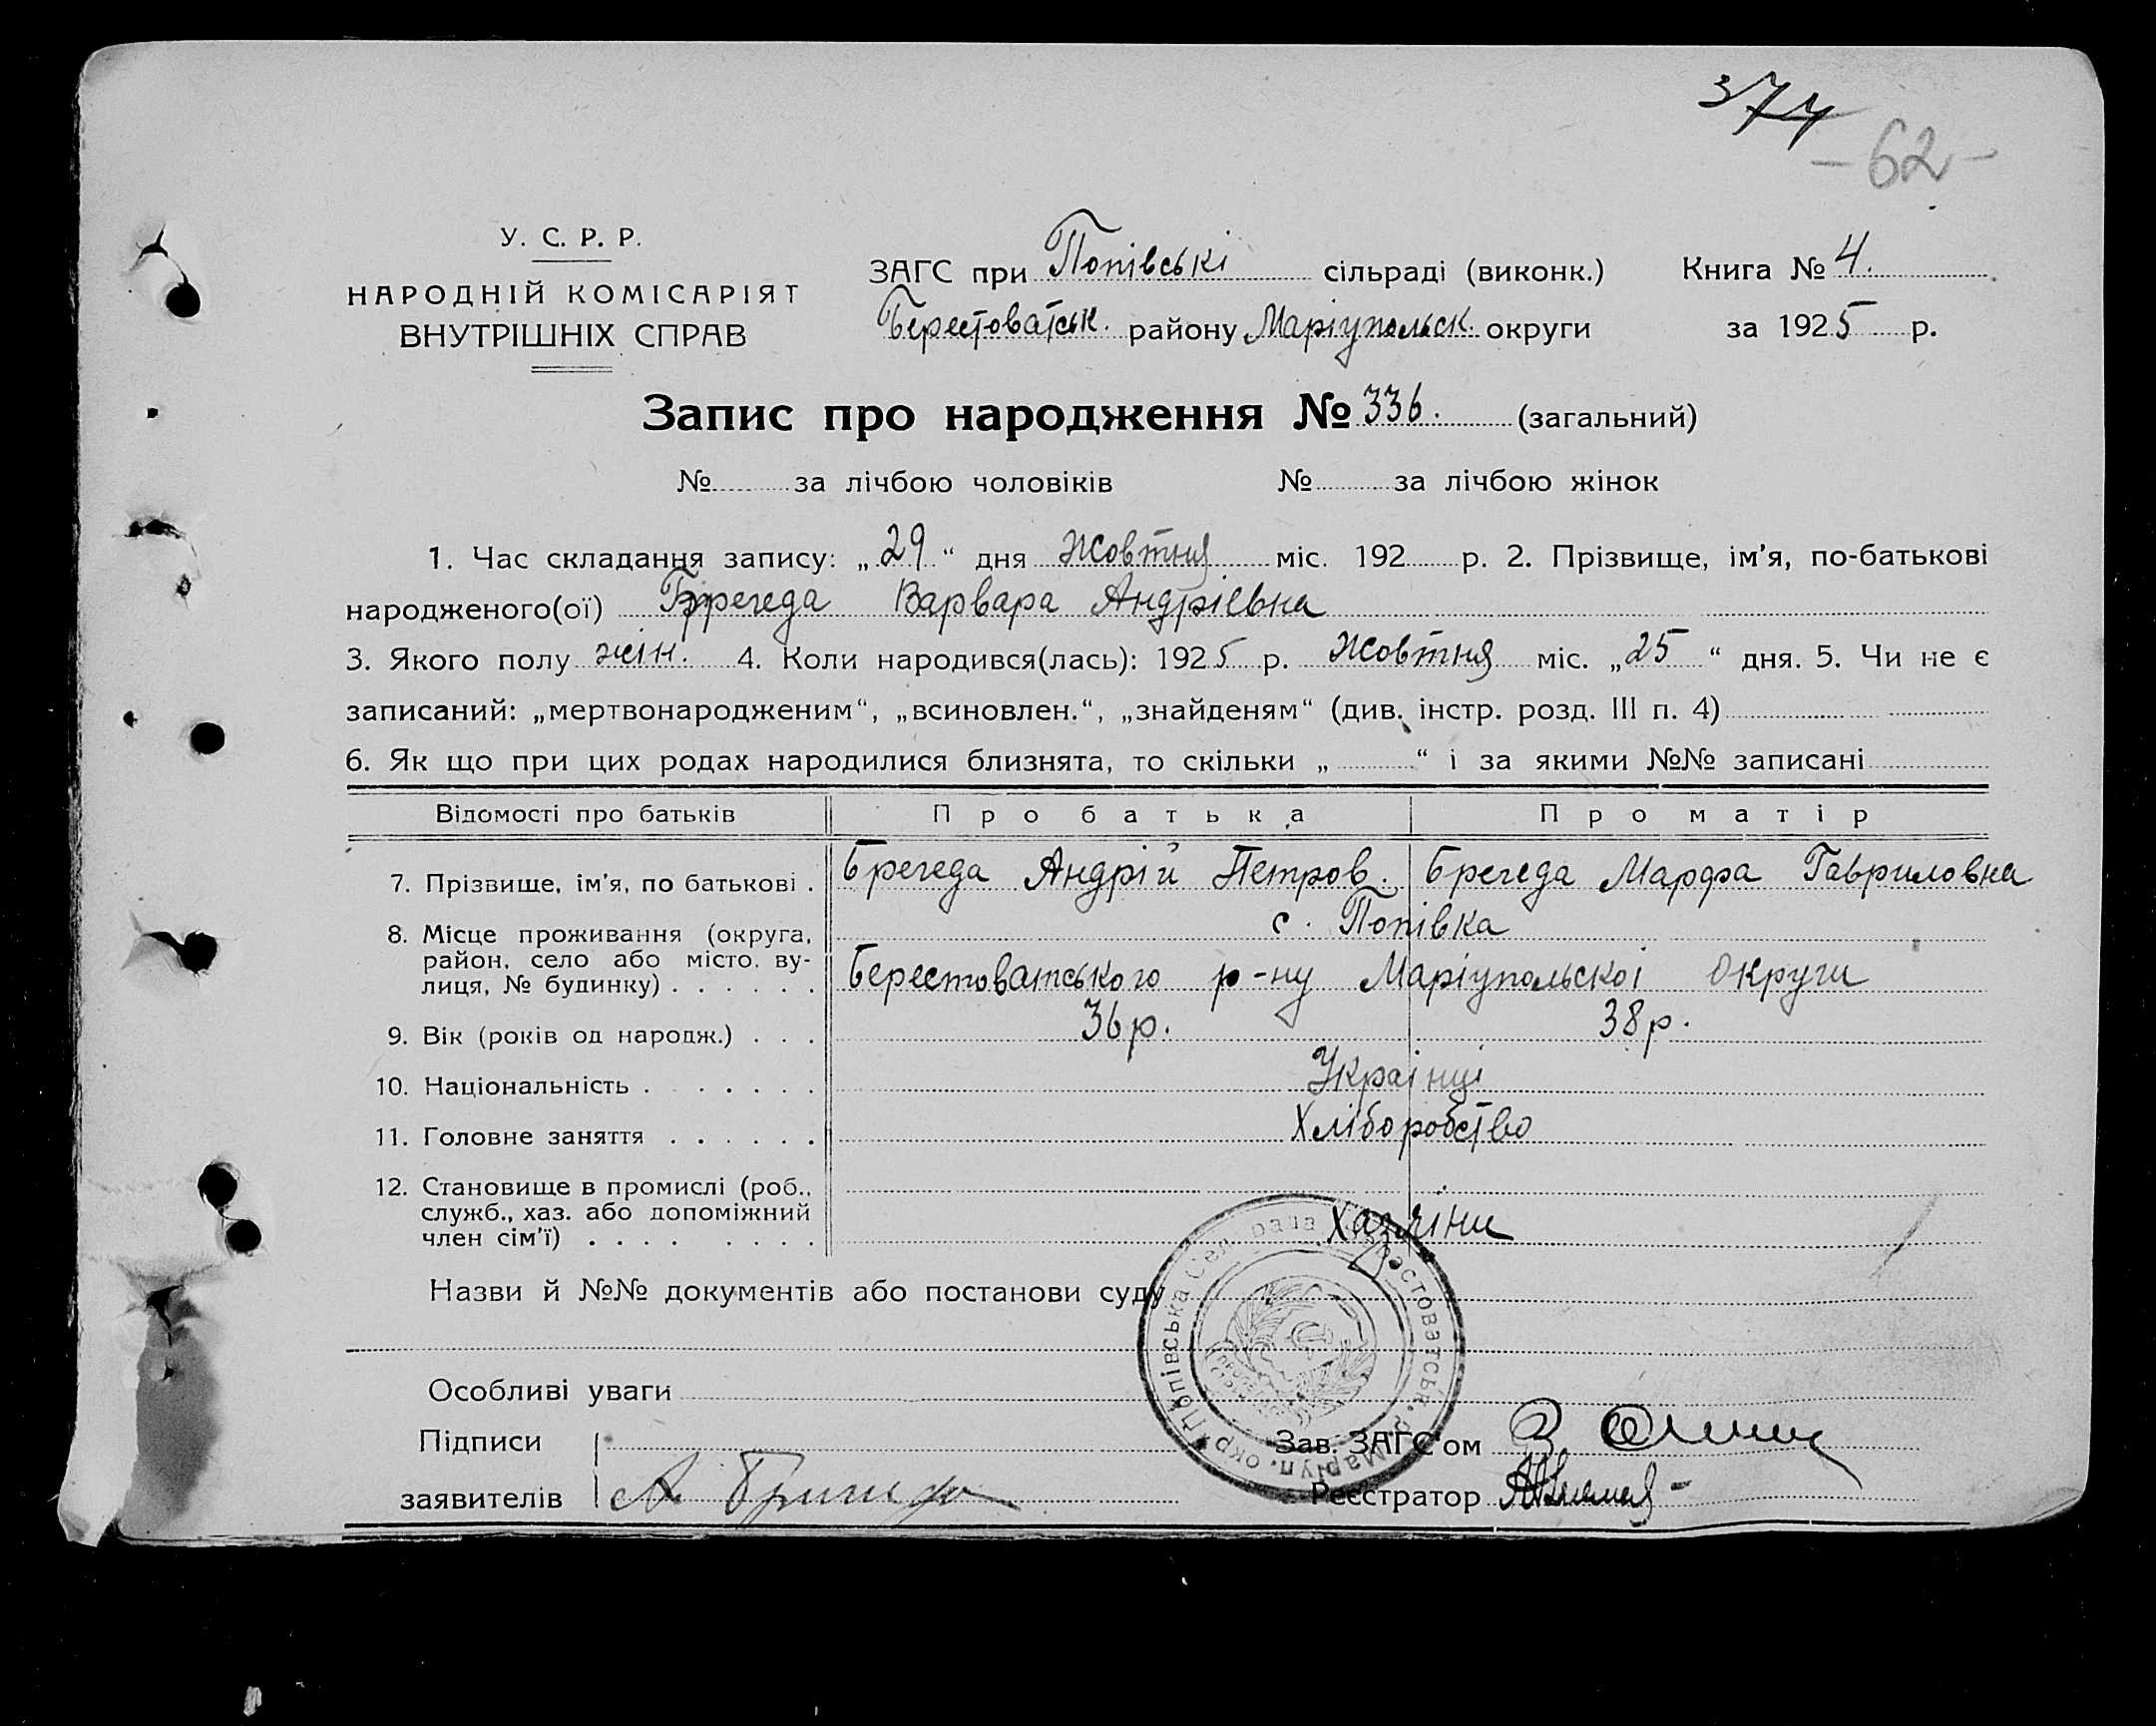 374
-62-
У. С. Р. Р.
НАРОДНІЙ КОМІСАРІЯТ
ВНУТРІШНІХ СПРАВ
ЗАГС при Попівські сільраді (виконк.) Книга № 4.
Берестоватськ. району Маріупольск. округи за 1925 р.
Запис про народження № 336. (загальний)
№ за лічбою чоловіків № за лічбою жінок
1. Час складання запису: „29“ дня Жовтня міс. 192 р. 2. Прізвище, ім'я, по-батькові
народженого(ої) Брегеда Варвара Андріевна
3. Якого полу жін. 4. Коли народився(лась): 1925 р. Жовтня міс. „25“ дня. 5. Чи не є
записаний: „мертвонародженим“, „всиновлен.“, „знайденям“ (див. інстр. розд. III п. 4)
6. Як що при цих родах народилися близнята, то скільки „ “ і за якими №№ записані
Відомості про батьків Про батька Про матір
7. Прізвище, ім'я, по батькові . Брегеда Андрій Петров. Брегеда Марфа Гавриловна
8. Місце проживання (округа, с. Попівка
район, село або місто, ву-
лиця, № будинку) . . . . . . Берестоватського р-ну Маріупольскоі Округи
9. Вік (років од народж.) . . . 36 р. 38 р.
10. Національність . . . . . . Украінці
11. Головне заняття . . . . . . Хліборобство
12. Становище в промислі (роб.,
служб., хаз. або допоміжний Хазяіни
член сім'ї) . . . . . . . .
Назви й №№ документів або постанови суду
Попівська Сел. рада Берестоватськ. р. Маріуп. окр.
Особливі уваги
Підписи Зав. ЗАГС'ом
заявителів А Реєстратор